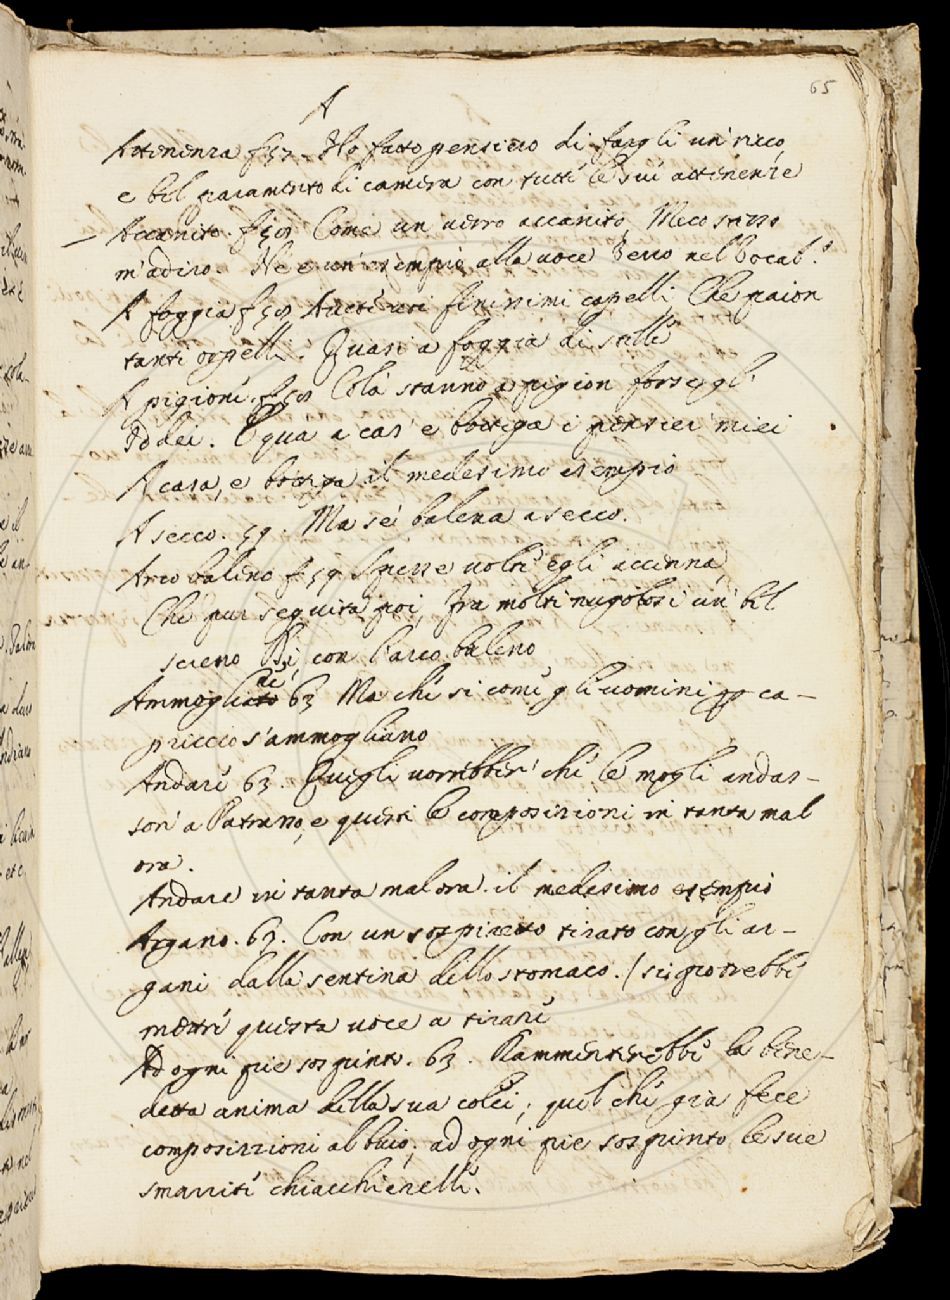 65
A
Attenenza f 57. Ho fatto pensiero di fargli un ricco,
e bel paramento di camera con tutti le sui attenenze
Accanito. f 58 Come un verro accanito, Meco stesso
m'adiro. Ne è un esempio alla voce Verro nel Vocab.º
A foggia f 58 Avete voi finissimi capelli Che paion
tanti orpelli. Quasi a foggia di stelle
A pigione. f 58 Colà stanno a pigion forse gl'
Iddei. E qua a cas' e bottega i pensier miei
A casa, e bottega il medesimo esempio
A secco. 59. Ma se balena a secco.
Arco baleno f 59 Spesse volte egli accenna,
Che pur seguita poi, fra molti nugolosi un bel
sereno Di con l'arco baleno
Ammogliare 63 Ma chè si come gli uomini p ca-
priccio s'ammogliano
Andare 63. Quegli vorrebber' che le mogli andas-
son' a Patrasso, e questi le composizioni in tanta mal
ora.
Andare in tanta mal ora. il medesimo esempio
Argano. 63. Con un sospiretto tirato con gli ar-
gani dalla sentina dello stomaco. / si potrebbe
mettre questa voce a tirare
Ad ogni piè sospinto. 63. Rammenterebbe la bene-
detta anima della sua colei, quel che già fece
composizioni al buio, ad ogni piè sospinto le sue
smarrite chiacchierelle.